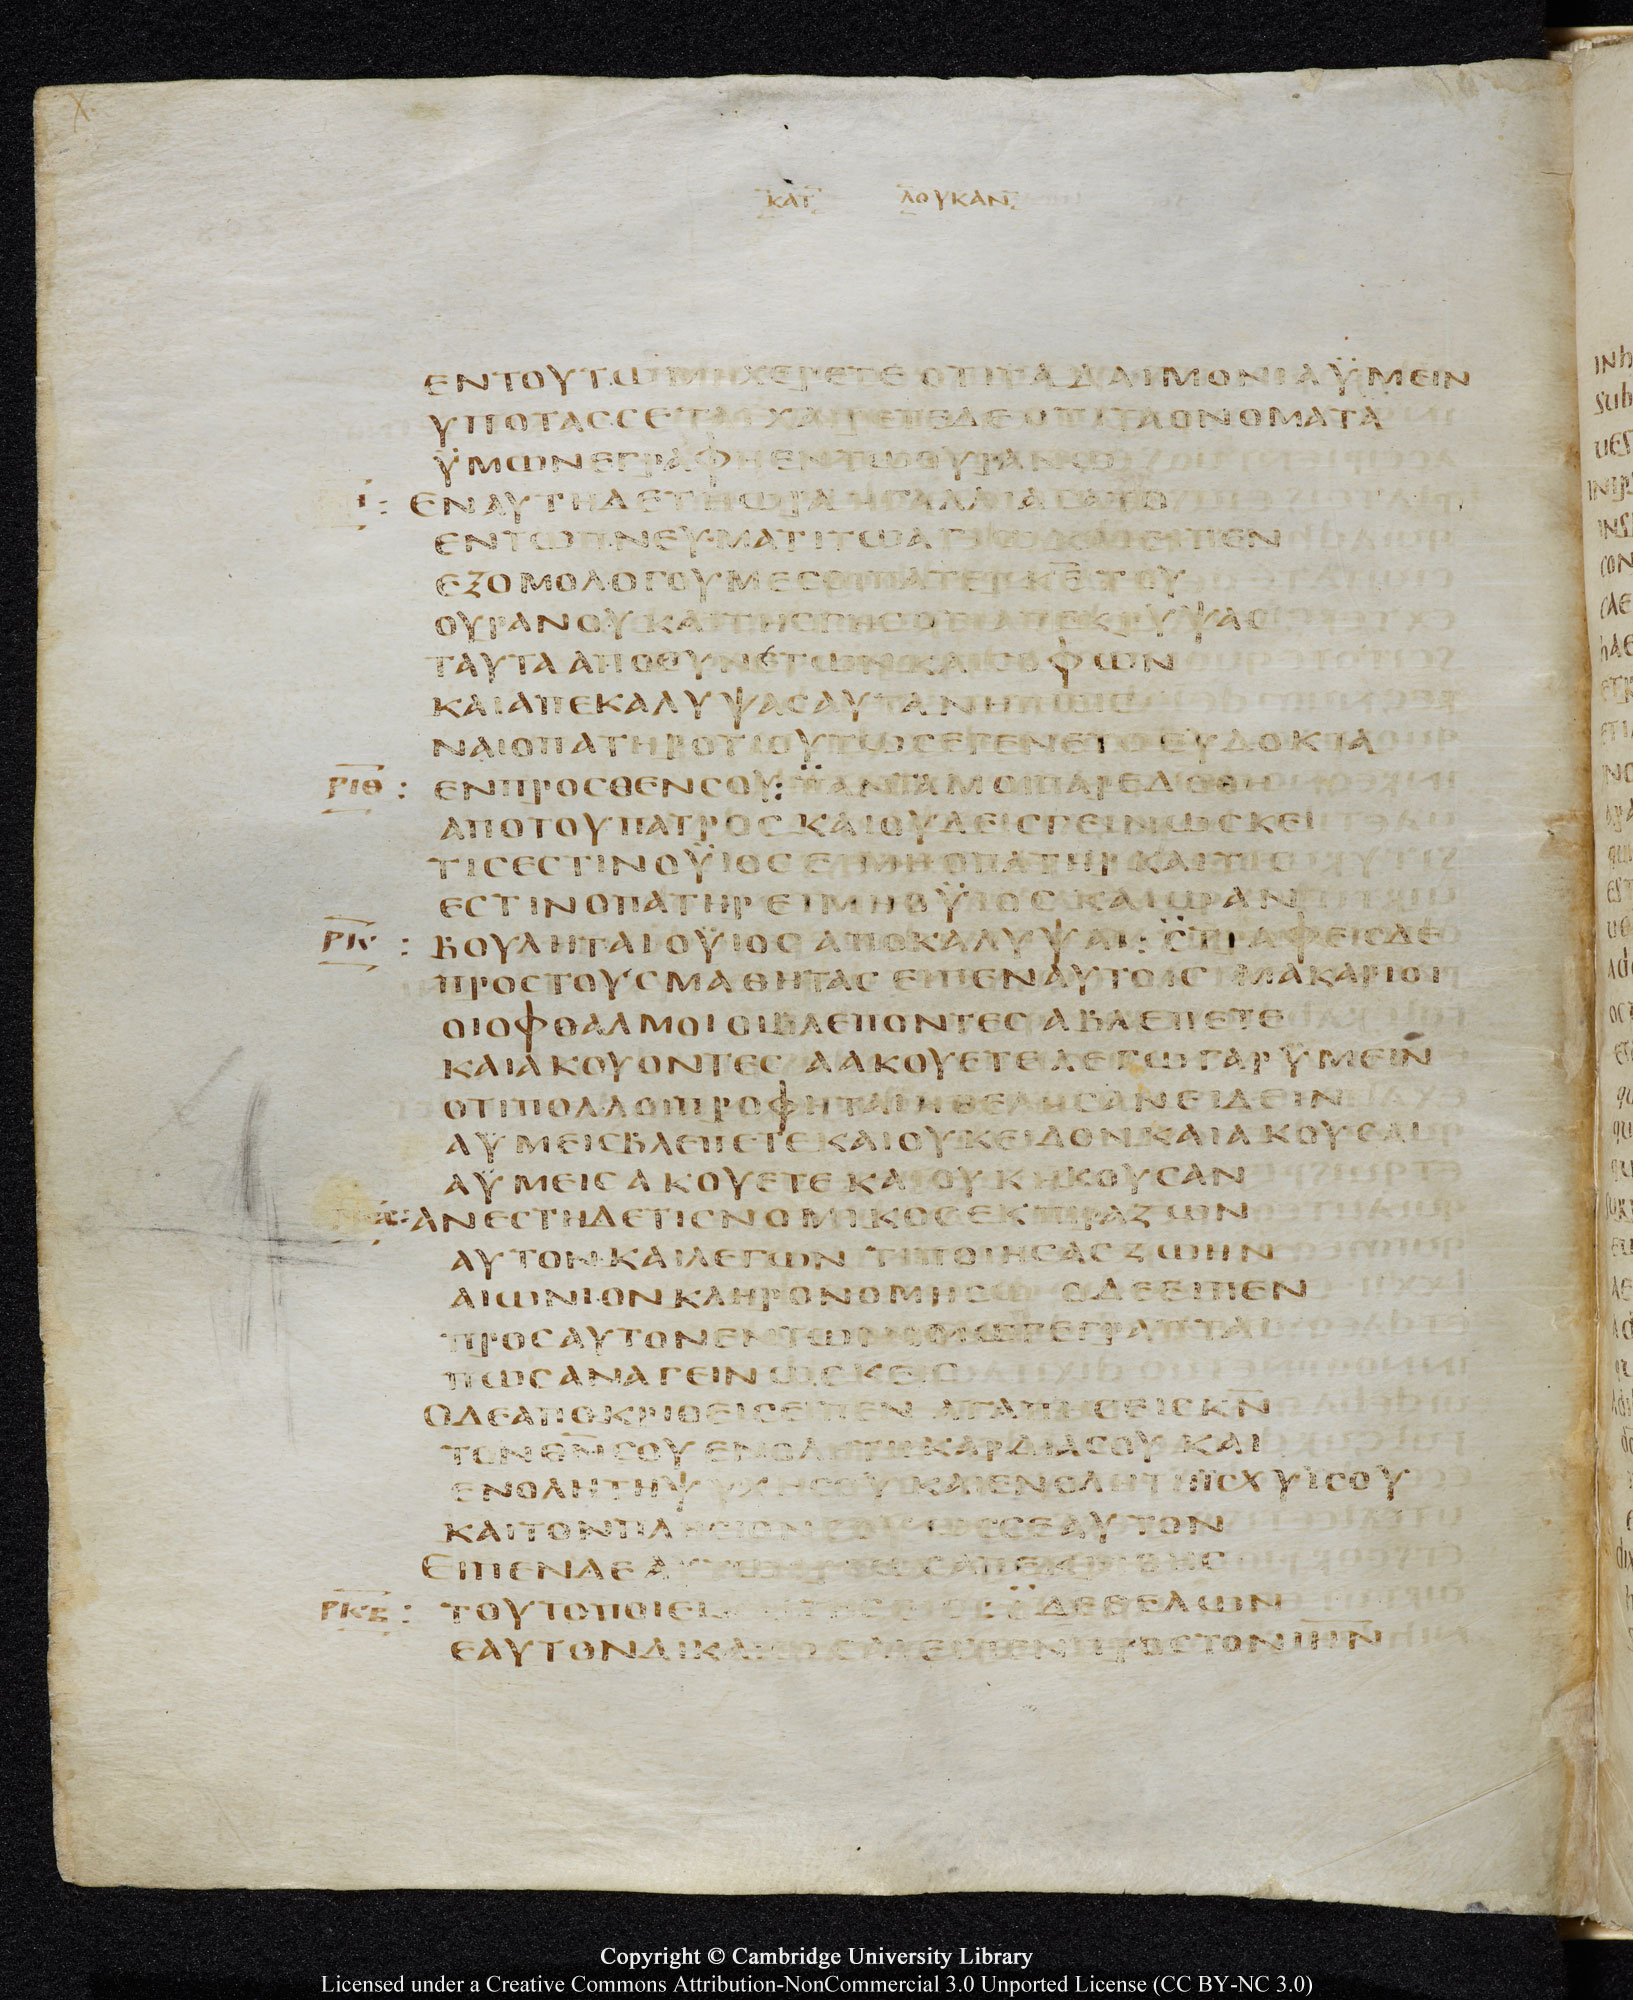 ΚΑΤ ΛΟΥΚΑΝ
ΕΝΤΟΥΤΩΜΗΧΕΡΕΤΕ ΟΤΙΤΑΔΑΙΜΟΝΙΑΫΜΕΙΝ
ΥΠΟΤΑССΕΤΑΙ ΧΑΙΡΕΤΕΔΕ ΟΤΙΤΑΟΝΟΜΑΤΑ
ΫΜΩΝΕΓΡΑΦΗΕΝΤΩΟΥΡΑΝΩ
ΕΝΑΥΤΗΔΕΤΗΩΡΑ ΗΓΑΛΛΙΑСΑΤΟ
ΕΝΤΩΠΝΕΥΜΑΤΙΤΩΑΓΙΩ ΕΙΠΕΝ
ΕΞΟΜΟΛΟΓΟΥΜΕСΟΙΠΑΤΕΡ ΚΕ ΤΟΥ
ΟΥΡΑΝΟΥ ΚΑΙΤΗСΓΗСΟΤΙΑΠΕΚΡΥΨΑС
ΤΑΥΤΑ ΑΠΟСΥΝΕΤΩΝ ΚΑΙСΟΦΩΝ
ΚΑΙΑΠΕΚΑΛΥΨΑСΑΥΤΑ ΝΗΠΙΟΙС
ΝΑΙΟΠΑΤΗΡΟΤΙΟΥΤΩСΕΓΕΝΕΤΟ ΕΥΔΟΚΙΑ
ΡΙΘ : ΕΝΠΡΟСΘΕΝСΟΥ: ΠΑΝΤΑΜΟΙΠΑΡΕΔΟΘΗ
ΑΠΟΤΟΥΠΑΤΡΟС ΚΑΙΟΥΔΕΙСΓΕΙΝΩСΚΕΙ
ΤΙСΕСΤΙΝΟΫΙΟС ΕΙΜΗΟΠΑΤΗΡ ΚΑΙΤΙС
ΕСΤΙΝΟΠΑΤΗΡ ΕΙΜΗΟΫΙΟС ΚΑΙΩΡΑΝ
ΡΚ : ΒΟΥΛΗΤΑΙΟΫΙΟС ΑΠΟΚΑΛΥΨΑΙ: СΤΡΑΦΕΙСΔΕ
ΠΡΟСΤΟΥСΜΑΘΗΤΑС ΕΙΠΕΝΑΥΤΟΙС ΜΑΚΑΡΙΟΙ
ΟΙΟΦΘΑΛΜΟΙ ΟΙΒΛΕΠΟΝΤΕС ΑΒΛΕΠΕΤΕ
ΚΑΙΑΚΟΥΟΝΤΕС ΑΑΚΟΥΕΤΕ ΛΕΓΩΓΑΡΫΜΕΙΝ
ΟΤΙΠΟΛΛΟΙΠΡΟΦΗΤΑΙ ΗΘΕΛΗСΑΝΕΙΔΕΙΝ
ΑΫΜΕΙСΒΛΕΠΕΤΕΚΑΙΟΥΚΕΙΔΟΝ ΚΑΙΑΚΟΥСΑΙ
ΑΫΜΕΙСΑΚΟΥΕΤΕ ΚΑΙΟΥΚΗΚΟΥСΑΝ
ΑΝΕСΤΗΔΕΤΙСΝΟΜΙΚΟС ΕΚΠΙΡΑΖΩΝ
ΑΥΤΟΝ ΚΑΙΛΕΓΩΝ ΤΙΠΟΙΗСΑСΖΩΗΝ
ΑΙΩΝΙΟΝΚΛΗΡΟΝΟΜΗСΩ ΟΔΕΕΙΠΕΝ
ΠΡΟСΑΥΤΟΝΕΝΤΩΝΟΜΩΓΕΓΡΑΠΤΑΙ
ΠΩСΑΝΑΓΕΙΝΩСΚΕΙС
ΟΔΕΑΠΟΚΡΙΘΕΙСΕΙΠΕΝ ΑΓΑΠΗСΕΙСΚΝ
ΤΟΝΘΝСΟΥ ΕΝΟΛΗΤΗΚΑΡΔΙΑСΟΥ ΚΑΙ
ΕΝΟΛΗΤΗΨΥΧΗСΟΥ ΚΑΙΕΝΟΛΗΤΗΙСΧΥΪСΟΥ
ΚΑΙΤΟΝΠΛΗСΙΟΝСΟΥ ΩССΕΑΥΤΟΝ
ΕΙΠΕΝΔΕΑΥΤΩ ΟΡΘΩСΑΠΕΚΡΙΘΗС
ΡΚΒ : ΤΟΥΤΟΠΟΙΕΙ ΚΑΙΖΗСΕΙС: ΟΔΕΘΕΛΩΝ
ΕΑΥΤΟΝΔΙΚΑΙΩСΑΙΕΙΠΕΝΠΡΟСΤΟΝΙΗΝ
Copyright © Cambridge University Library
Licensed under a Creative Commons Attribution-NonCommercial 3.0 Unported License (CC BY-NC 3.0)